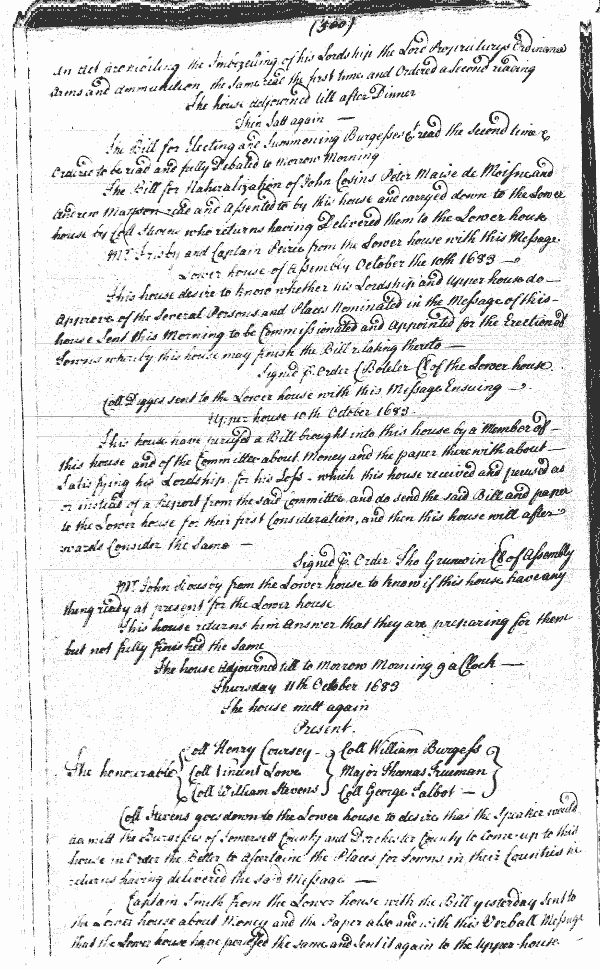 (500)
An Act prohibiting the Imbezelling of his Lordship the Lord Proprietarys Ordinance
Arms and ammunition, the same read the first time and Ordered a Second reading
The house adjourned till after Dinner
Then Satt again
The Bill for Electing and Summoning Burgesses read the Second time &
Ordered to be read and fully Debated to Morrow Morning
The Bill for Naturalization of John Cosins Peter and
Andrew read and Assented to by this house and carryed down to the Lower
house by Coll Stevens who returns having Delivered them to the Lower house
Mr. and Captain from the Lower house with this Message.
Lower house of Assembly October the 10th 1683
This house desire to know whether his Lordship and Upper house do
Approve of the Several Persons and Places Nominated in the Message of this
house Sent this Morning to be Commissionated and Appointed for the Erection of
Towns whereby this house may finish the Bill relating thereto
Signed p. Order C Boteler Clk of the Lower house
Coll Digges sent to the Lower house with this Message Ensuing
Upper house 10th October 1683.
This house have perused a Bill brought into this house by a Member of
this house and of the Committee about Money and the paper therewith about
Satisfying his Lordship for his Loss. which this house received and perused as
or instead of a Report from the said Committee, and do send the said Bill and paper
to the Lower house for their first Consideration, and then this house will after
wards Consider the Same
Signed p. Order Tho Grunwin Clk of Assembly
Mr. John Rousby from the Lower house to know if this house have any
thing ready at present for the Lower house
This house returns him Answer that they are preparing for them
but not fully finished the Same
The house Adjourned till to Morrow Morning 9 a Clock
Thursday 11th October 1683
The house mett again
Present.
The honourable Coll Henry Coursey Coll William Burgess
Coll Vincent Lowe Major Thomas Truman
Coll William Stevens Coll George Talbot
Coll Stevens goes down to the Lower house to desire that the Speaker would
admitt the Burgesses of Somersett County and Dorchester County to come up to this
house in Order the Better to Ascertaine the Places for Towns in their Counties he
returns having delivered the said Message
Captain Smith from the Lower house with the Bill yesterday sent to
the Lower house about Money and the Paper also and with this Verball Message
that the Lower house have perused the same and sent it again to the Upper house